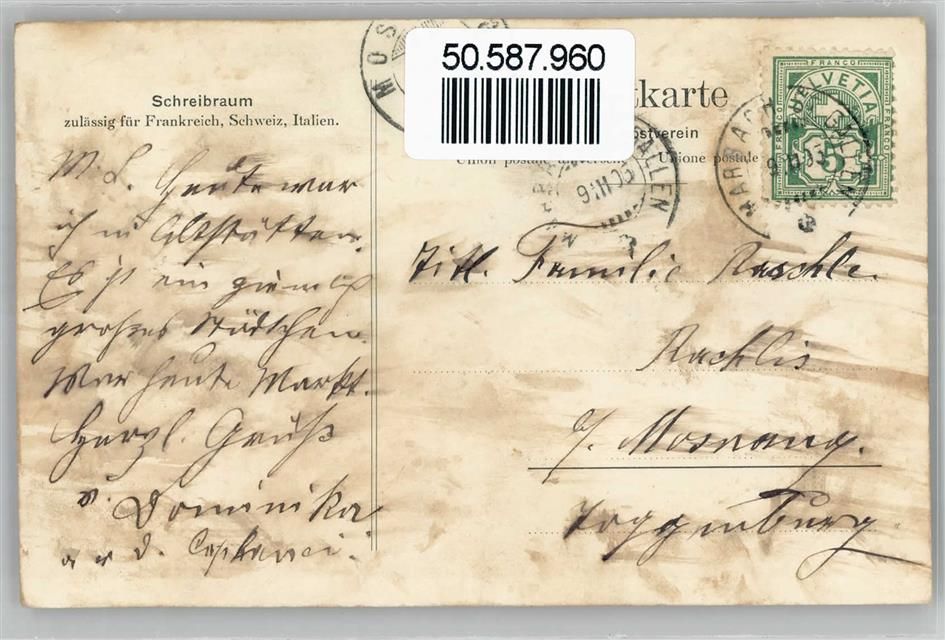 50.587.960
MOS
Schreibraum
zulässig für Frankreich, Schweiz, Italien.
tkarte
postverein
Union postale universelle Unione postale
FRANCO
HELVETIA
5
MARBACH
ALLEN
M. L. Heute war
ich in Altstätten.
Es ist ein ziemlich
großes Städtchen.
War heute Markt.
Herzl. Grüße
v. Dominika
Titl. Familie Raschle.
Rachlis
b/ Mosnang.
Toggenburg